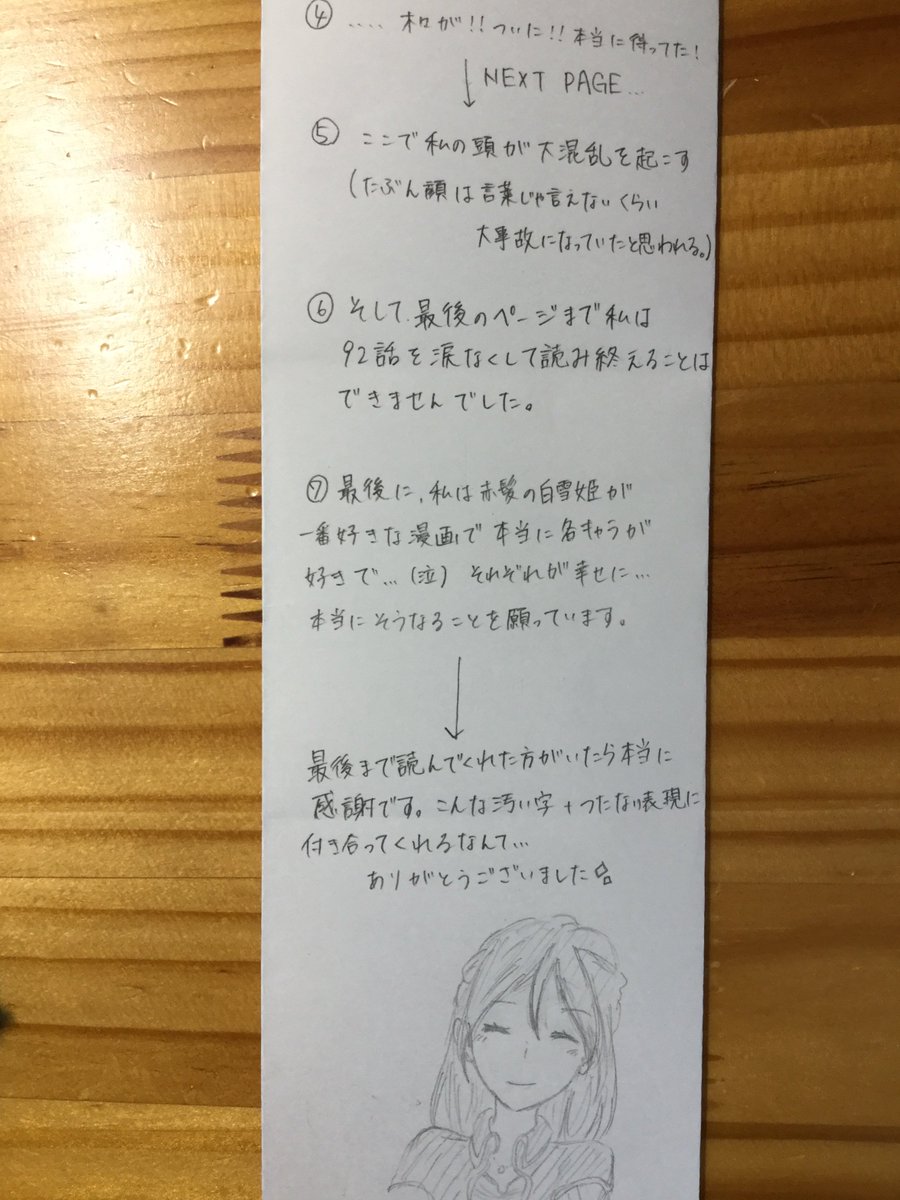 ④ .... 木々が!! ついに!! 本当に待ってた!
NEXT PAGE...
⑤ ここで私の頭が大混乱を起こす
(たぶん顔は言葉じゃ言えないくらい
大事故になっていたと思われる。)
⑥ そして、最後のページまで私は
92話を涙なくして読み終えることは
できませんでした。
⑦ 最後に、私は赤髪の白雪姫が
一番好きな漫画で本当に各キャラが
好きで...(泣) それぞれが幸せに...
本当にそうなることを願っています。
最後まで読んでくれた方がいたら本当に
感謝です。こんな汚い字+つたない表現に
付き合ってくれるなんて...
ありがとうございました☆